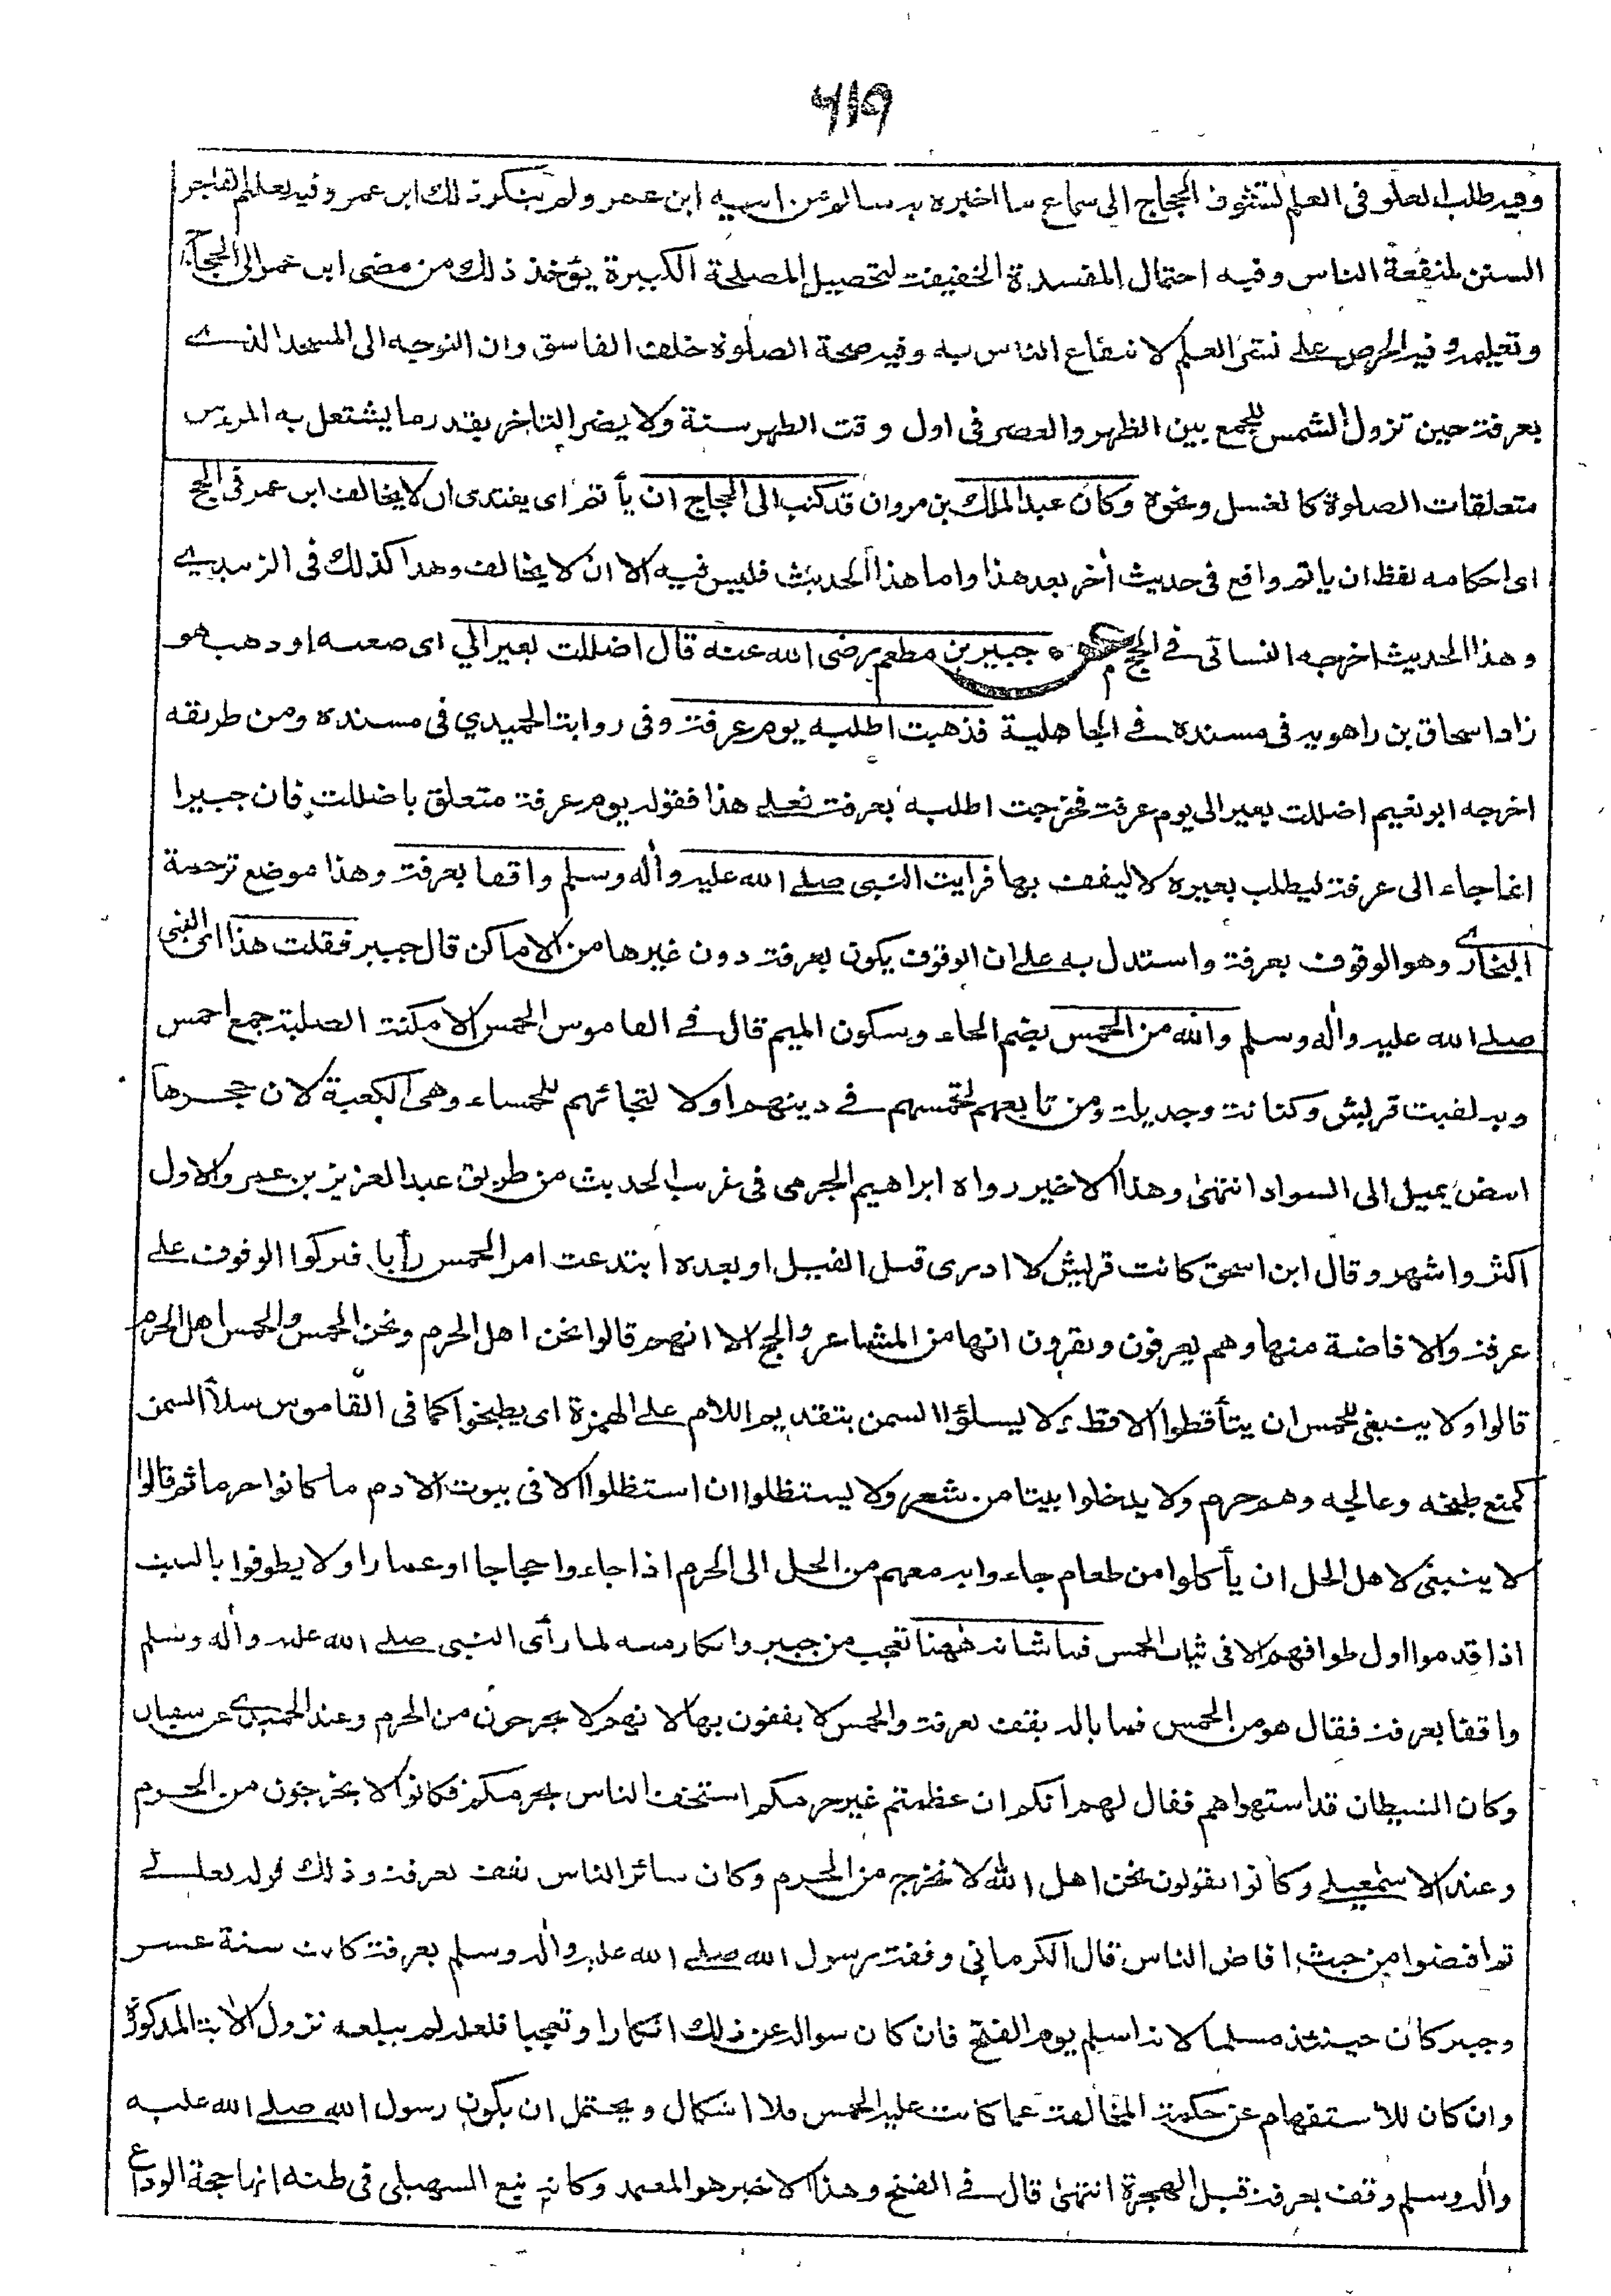 ۶۱۹
وفيه طلب العلو في العلم لتشوف الحجاج الى سماع ما اخبره به سالم عن ابيه ابن عمر ولم ينكر ذلك ابن عمر وفيه تعليم الفاجر
السنن لمنفعة الناس وفيه احتمال المفسدة الخفيفة لتحصيل المصلحة الكبيرة يؤخذ ذلك من مضى ابن عمر الى الحجاج
وتعليمه وفيه الحرص على نشر العلم لانتفاع الناس به وفيه صحة الصلوة خلف الفاسق وان التوجه الى المسجد الذى
بعرفة حين تزول الشمس للجمع بين الظهر والعصر فى اول وقت الظهر سنة ولا يضر التاخر بقدر ما يشتغل به المرء من
متعلقات الصلوة كالغسل ونحوه وكان عبد الملك بن مروان قد كتب الى الحجاج ان يأتم اى يقتدى ان لا يخالف ابن عمر فى الحج
اى احكامه لفظ ان ياتم واقع فى حديث أخر بعد هذا واما هذا الحديث فليس فيه الا ان لا يخالف وهذا كذلك فى
وهذا الحديث اخرجه النسائى فى الحج جبير بن مطعم رضى الله عنه قال اضللت بعيرا لي اى ضعته او ذهب هو
زاد اسحاق بن راهويه فى مسنده فى الجاهلية فذهبت اطلبه يوم عرفة وفى رواية الحميدي فى مسنده ومن طريقه
اخرجه ابو نعيم اضللت بعيرا لى يوم عرفة فخرجت اطلبه بعرفة فعلى هذا فقوله يوم عرفة متعلق باضللت فان جبيرا
انما جاء الى عرفة ليطلب بعيره لا ليقف بها فرايت النبى صلى الله عليه وأله وسلم واقفا بعرفة وهذا موضع ترجمة
البخارى وهو الوقوف بعرفة واستدل به على ان الوقوف يكون بعرفة دون غيرها من الاماكن قال جبير فقلت هذا اى النبى
صلى الله عليه وأله وسلم والله من الحمس بضم الحاء وسكون الميم قال فى القاموس الحمس الامكنة الصلبة جمع احمس
وبه لقبت قريش وكنانة وجديلة ومن تابعهم لتحمسهم فى دينهم او لالتجائهم بالحمساء وهى الكعبة لان حجرها
ابيض يميل الى السواد انتهى وهذا الاخير رواه ابراهيم الحربى فى غريب الحديث من طريق عبد العزيز بن عمر والاول
اكثر واشهر وقال ابن اسحق كانت قريش لا ادرى قبل الفيل او بعده ابتدعت امر الحمس رأيا فتركوا الوقوف على
عرفة والافاضة منها وهم يعرفون ويقرون انها من المشاعر والحج الا انهم قالوا نحن اهل الحرم ونحن الحمس والحمس اهل الحرم
قالوا ولا ينبغى للحمس ان يتأقطوا الاقط ولا يسلؤا السمن بتقديم اللام على الهمزة اى يطبخوا كما فى القاموس سلأ السمن
كمنع طبخه وعالجه وهم حرم ولا يدخلوا بيتا من شعر ولا يستظلوا ان استظلوا الا فى بيوت الادم ما كانوا حرما ثم قالوا
لا ينبغى لاهل الحل ان يأكلوا من طعام جاءوا به معهم من الحل الى الحرم اذا جاءوا حجاجا او عمارا ولا يطوفوا بالبيت
اذا قدموا اول طوافهم الا فى ثياب الحمس فما شانه ههنا تعجب من جبير وانكار منه لما رأى النبى صلى الله عليه وأله وسلم
واقفا بعرفة فقال هو من الحمس فما باله يقف بعرفة والحمس لا يقفون بها لانهم لا يخرجون من الحرم وعند الحميدى عن سفيان
وكان الشيطان قد استهواهم فقال لهم انكم ان عظمتم غير حرمكم استخف الناس بحرمكم فكانوا لا يخرجون من الحرم
وعند الاسمٰعيلى وكانوا يقولون نحن اهل الله لا نخرج من الحرم وكان سائر الناس تقف بعرفة وذلك قوله تعالى
ثم افيضوا من حيث افاض الناس قال الكرمانى وقفة رسول الله صلى الله عليه وأله وسلم بعرفة كانت سنة عشر
وجبير كان حينئذ مسلما لانه اسلم يوم الفتح فان كان سواله عن ذلك انكارا وتعجبا فلعله لم يبلغه نزول الاية المذكورة
وان كان للاستفهام عن حكمة المخالفة عما كانت عليه الحمس فلا اشكال ويحتمل ان يكون رسول الله صلى الله عليه
وأله وسلم وقف بعرفة قبل الهجرة انتهى قال فى الفتح وهذا الاخير هو المعتمد وكانه تبع السهيلى فى ظنه انها حجة الوداع